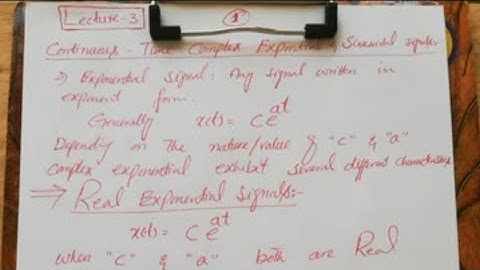 Lecture-3
1
Continuous - Time Complex Exponential & Sinusoidal Signals
⇒ Exponential Signal: Any signal written in
exponent form.
Generally x(t) = Ce^at
Depending on The nature/value of "C" & "a"
complex exponential exhibit several different characteristics
⇒ Real Exponential Signals:-
x(t) = Ce^at
when "C" & "a" both are Real